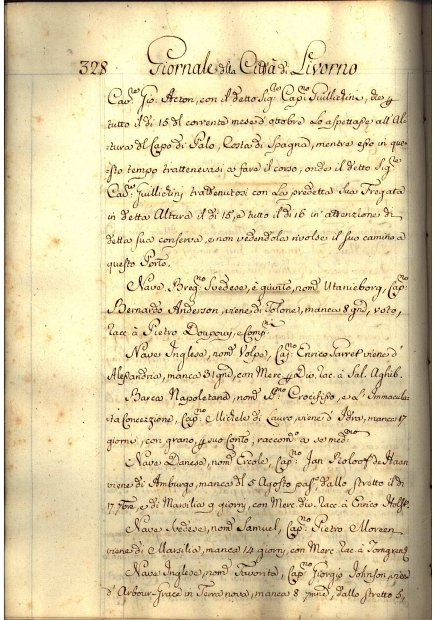 328 Giornale della Città di Livorno
Cav.re Gio. Acton, con il detto Sig.re Cap.no Guillichini, che p
tutto il di 15 del corrente mese d'ottobre lo aspettasse all'Al-
tura del Capo di Palo, Costa di Spagna, mentre esso in que-
sto tempo trattenevasi a fare il corso, onde il detto Sig.re
Cav.re Guillichini trattenutosi con la predetta sua Fregata
in detta Altura il di 15, e tutto il di 16 in attenzione di
detta sua conserva, e non vedendola rivolse il suo camino a
questo Porto.
Nave Svedese, è giunto, nom.
Bernardo Anderson, viene di Tolone, manca 8 gni, voto,
racc. a Pietro e Comp.
Nave Inglese, nom. Volpe, Cap. Enrico viene d'
Alessandria, manca 31 gni, con Merc. p Div. rac. a Sal. Aghib.
Barca Napoletana, nom. Crocifisso, e l'Immacola-
ta Concezzione, Cap.no Michele di Lauro, viene d'Idra, manca 17
giorni, con grano, p suo conto, raccom.o a se med.mo
Nave Danese, nom. Ercole, Cap.no Jan de Haan
viene di Amburgo, manca dl 6 Agosto pas.o dallo stretto il di
17 7bre, e di Marsilia 9 giorni, con Merc. div. racc. a Enrico
Nave Svedese, nom. Samuel, Cap.no Pietro Moreen
viene di Marsilia, manca 14 giorni, con Merc. rac. a
Nave Inglese, nom. Favorita, Cap.no Giorgio Johnson, viene
d'Arbour-Grace in Terra nova, manca 8 7mne, dallo stretto 5,